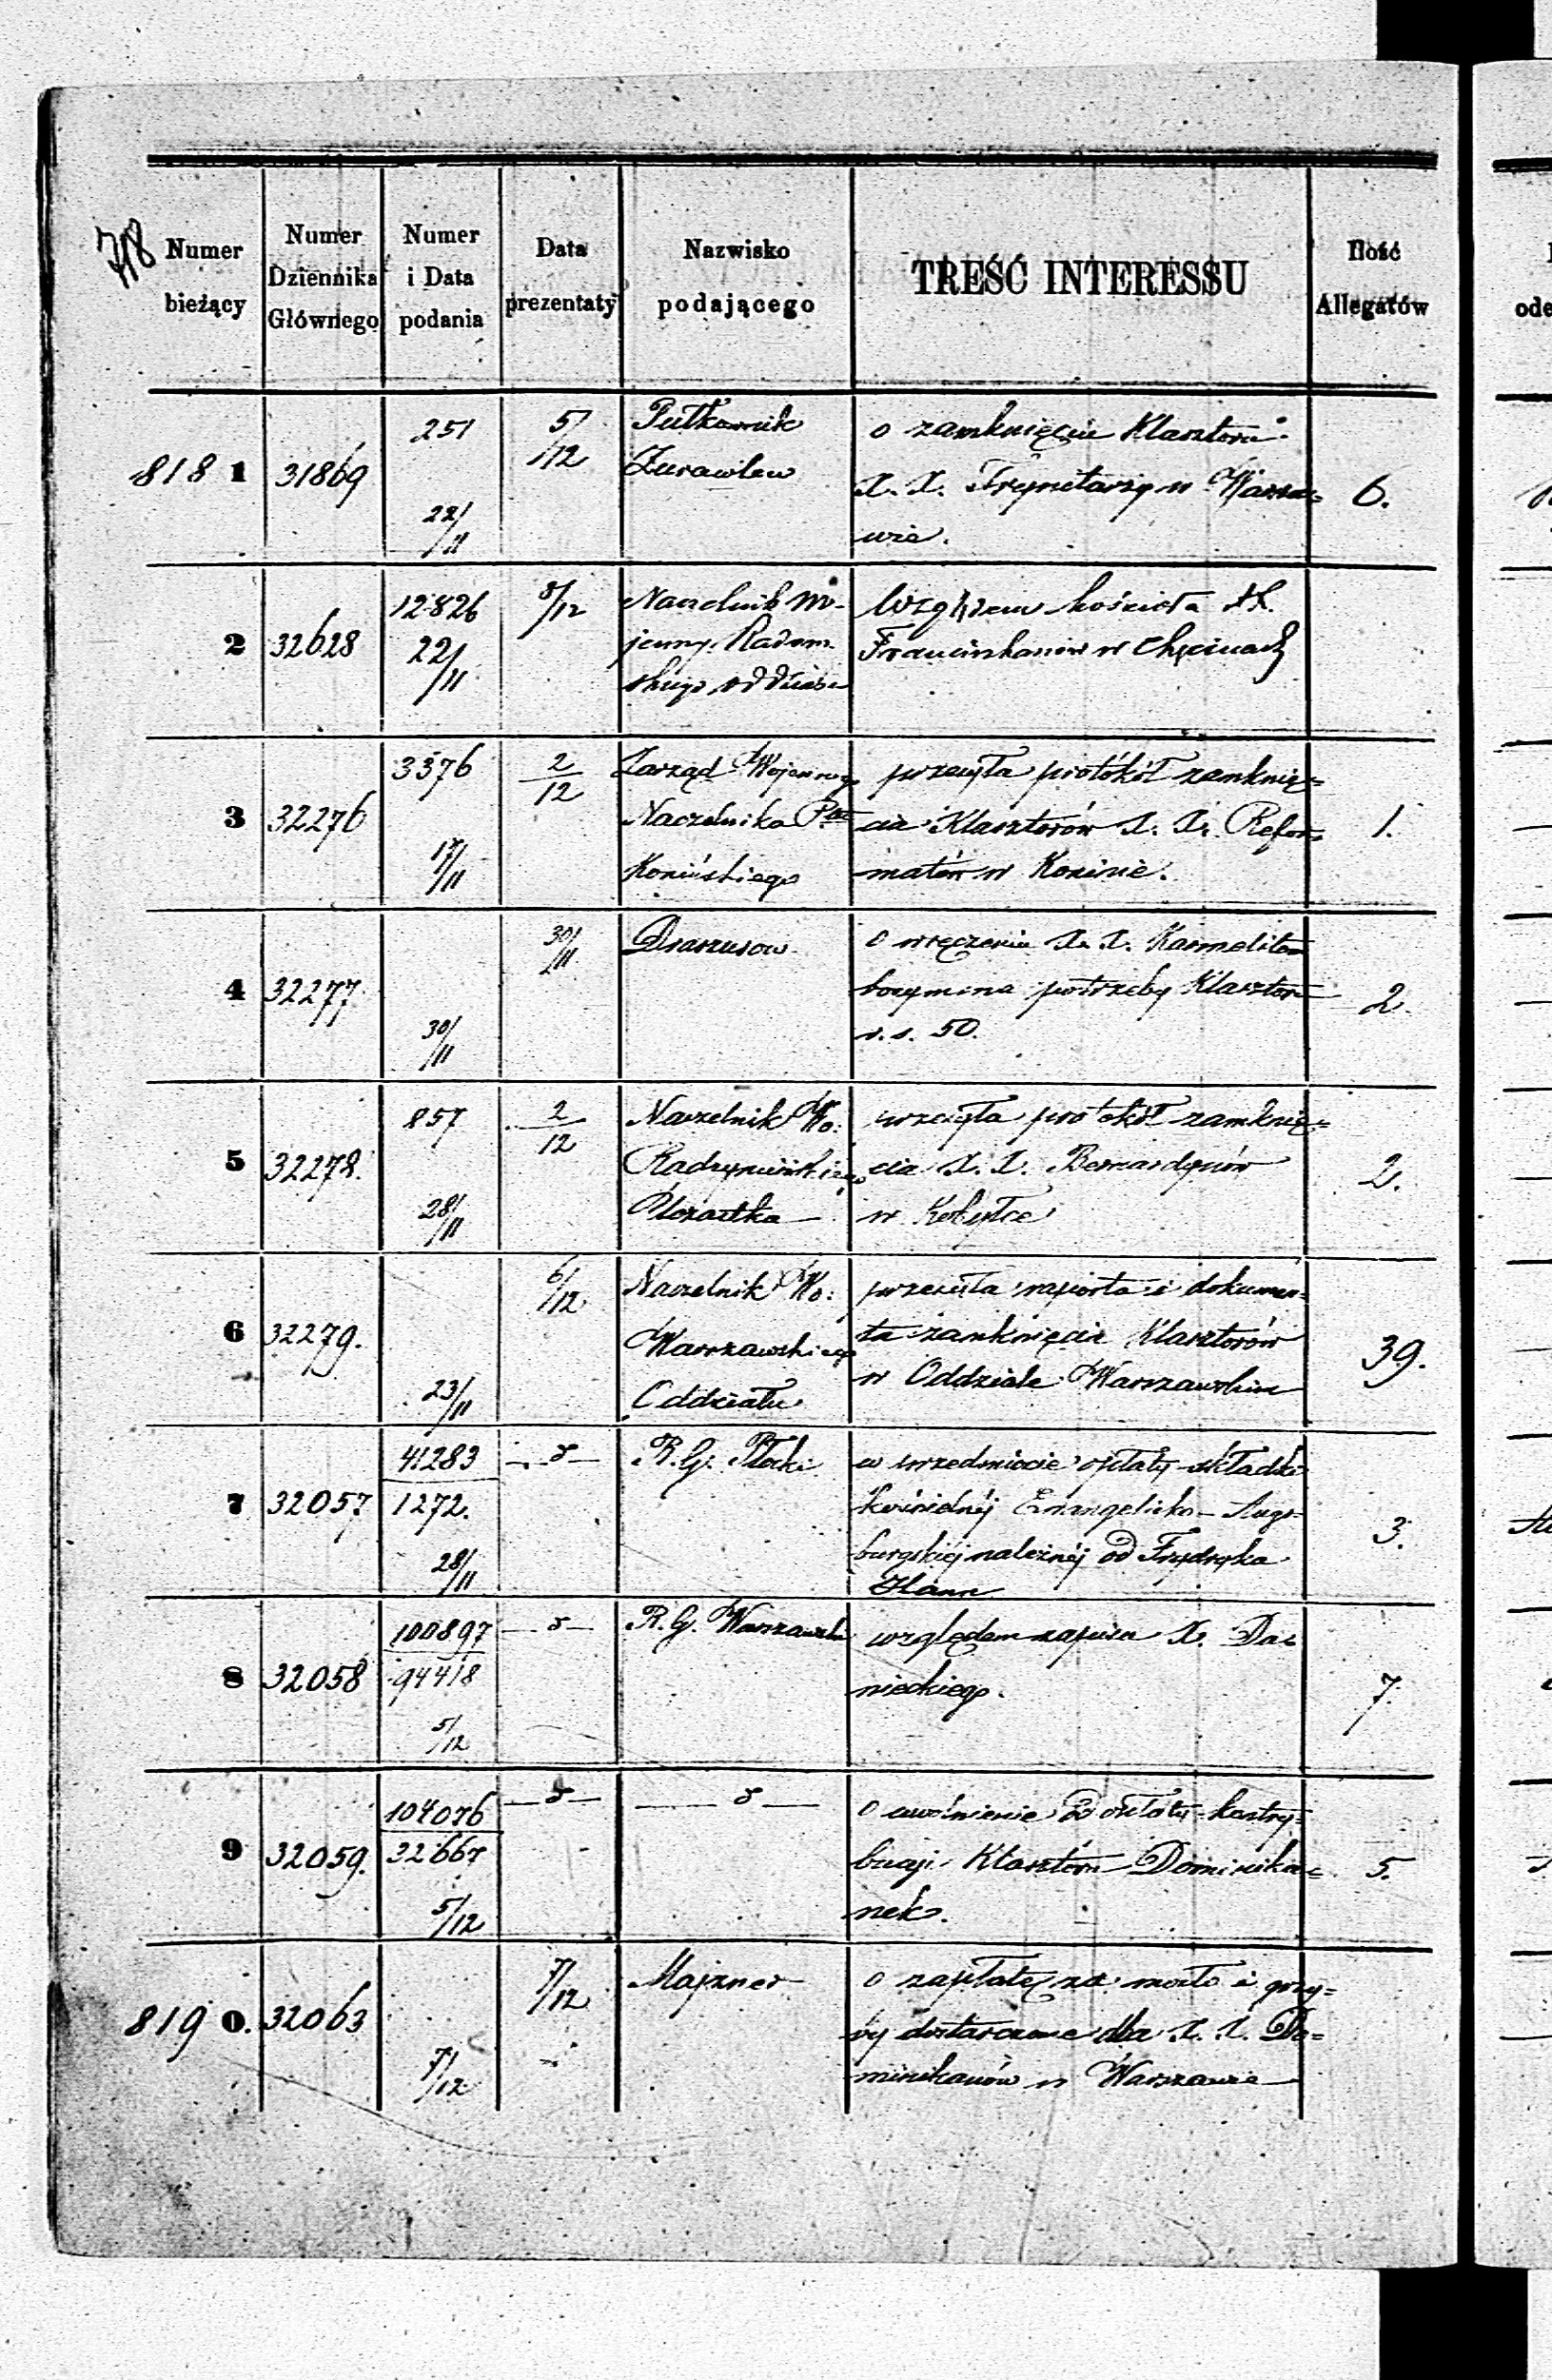 718
Numer bieżący
Numer Dziennika Głównego
Numer i Data podania
Data prezentaty
Nazwisko podającego
TREŚĆ INTERESSU
Ilość Allegatów
818 1
31869
251
22/11
5/12
Pułkownik
Żurawlew
o zamknięcie Klasztoru
X. X. Trynitarzy w Warsza=
wie.
6.
2
32628
12826
22/11
5/12
Naczelnik Wo-
jenny Radom.
skiego oddziału
Względem kościoła XX.
Franciszkanów w Chęcinach
3
32276
3376
17/11
2/12
Zarząd Wojennego
Naczelnika Ptu
Konińskiego
przesyła protókół zamknię=
cia Klasztorów X. X. Refor=
matów w Koninie.
1.
4
32277
30/11
30/11
o wręczeniu X. X. Karmelitom
potrzeby Klasztoru
r. s. 50.
2.
5
32278.
857
28/11
2/12
Naczelnik Wo:
Radzymińskiego
Uczastka
przesyła protokół zamknię=
cia X. X. Bernardynów
w Kobyłce
2.
6
32279.
23/11
6/12
Naczelnik Wo:
Warszawskiego
Oddziału
przesyła raporta i dokumen=
ta zamknięcia Klasztorów
w Oddziale Warszawskim
39.
7
32057
41283
1272.
28/11
R. G. Płocki
w przedmiocie opłaty składki
kościelnéj Ewangelicko-Augs=
burgskiéj należnéj od Frydryka
Hann
3.
8
32058
100897
94418
5/12
R. G. Warszawski
względem zapisu X. Da=
nieckiego.
7.
9
32059.
104076
32667
5/12
o uwolnienie od opłaty kontry=
bucji Klasztoru Dominika=
nek.
5.
819 0.
32063
7/12
7/12
Majzner
o zapłatę za masło i grzy=
by dostarczone dla X. X. Do=
minikanów w Warszawie